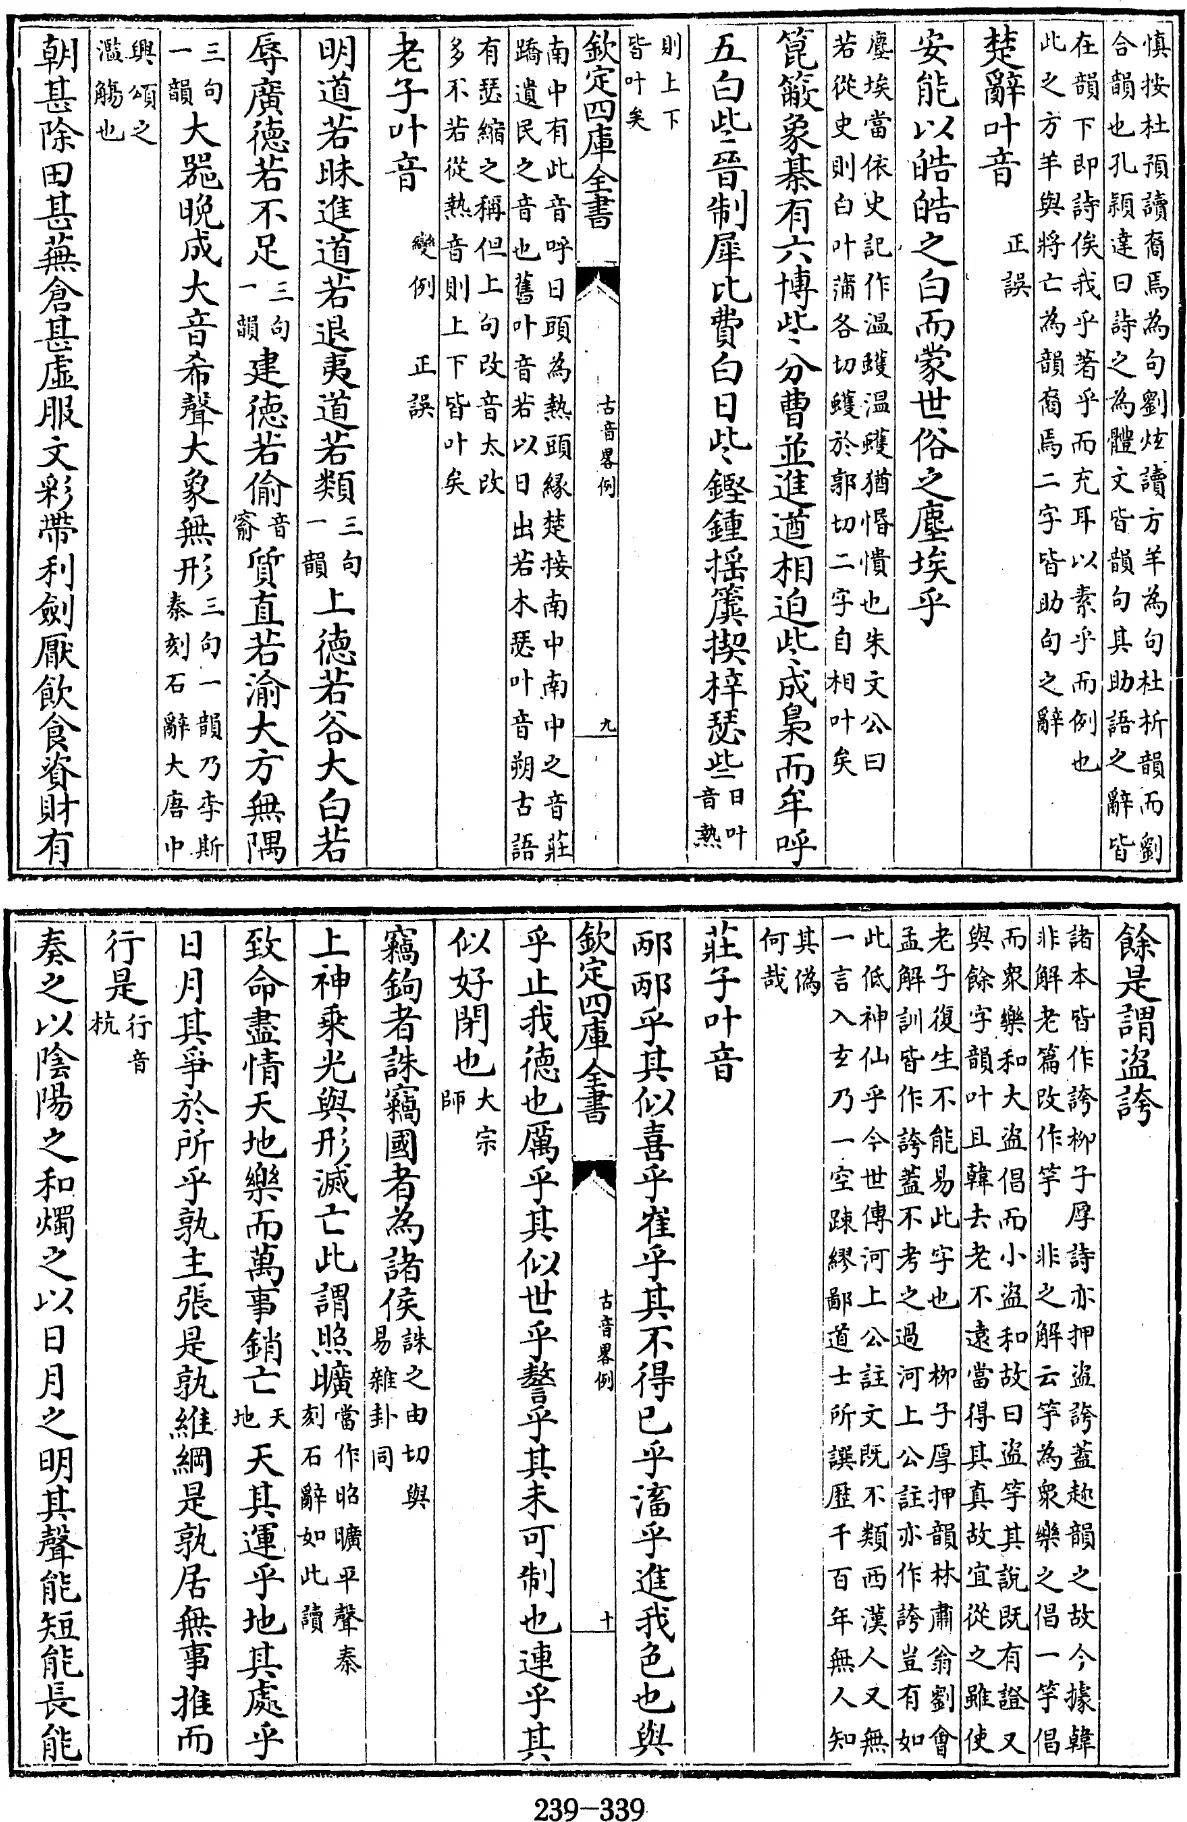 慎按杜預讀裔焉為句劉炫讀方羊為句杜析韻而劉
合韻也孔穎達曰詩之為體文皆韻句其助語之辭皆
在韻下即詩俟我乎著乎而充耳以素乎而例也
此之方羊與將亡為韻裔焉二字皆助句之辭
楚辭叶音　正誤
安能以皓皓之白而蒙世俗之塵埃乎
塵埃當依史記作温蠖温蠖猶惛憒也朱文公曰
若從史則白叶蒲各切蠖於郭切二字自相叶矣
箆簬象棊有六博些分曹並進遒相迫些成梟而牟呼
五白些晉制犀比費白日些鏗鍾搖簴揳梓瑟些日叶音熱
則上下
皆叶矣
欽定四庫全書　古音畧例　九
南中有此音呼日頭為熱頭緣楚接南中南中之音莊
蹻遺民之音也舊叶音若以日出若木瑟叶音朔古語
有瑟縮之稱但上句改音太改
多不若從熱音則上下皆叶矣
老子叶音　變例　正誤
明道若昧進道若退夷道若類三句一韻上德若谷大白若
辱廣德若不足三句一韻建德若偷音窬質直若渝大方無隅
三句一韻大器晚成大音希聲大象無形三句一韻乃李斯秦刻石辭大唐中
興頌之
濫觴也
朝甚除田甚蕪倉甚虛服文彩帶利劍厭飲食資財有
餘是謂盜誇
諸本皆作誇柳子厚詩亦押盜誇蓋趂韻之故今據韓
非解老篇改作竽　非之解云竽為衆樂之倡一竽倡
而衆樂和大盜倡而小盜和故曰盜竽其說既有證又
與餘字韻叶且韓去老不遠當得其真故宜從之雖使
老子復生不能易此字也　柳子厚押韻林肅翁劉會
孟解訓皆作誇蓋不考之過河上公註亦作誇豈有如
此低神仙乎今世傳河上公註文既不類西漢人又無
一言入玄乃一空踈繆鄙道士所譔歷千百年無人知
其偽
何哉
莊子叶音
邴邴乎其似喜乎崔乎其不得已乎滀乎進我色也與
欽定四庫全書　古音畧例　十
乎止我德也厲乎其似世乎謷乎其未可制也連乎其
似好閉也大宗師
竊鉤者誅竊國者為諸侯誅之由切與易雜卦同
上神乘光與形滅亡此謂照曠當作昭曠平聲秦刻石辭如此讀
致命盡情天地樂而萬事銷亡天地天其運乎地其處乎
日月其爭於所乎孰主張是孰維綱是孰居無事推而
行是行音杭
奏之以陰陽之和燭之以日月之明其聲能短能長能
239-339